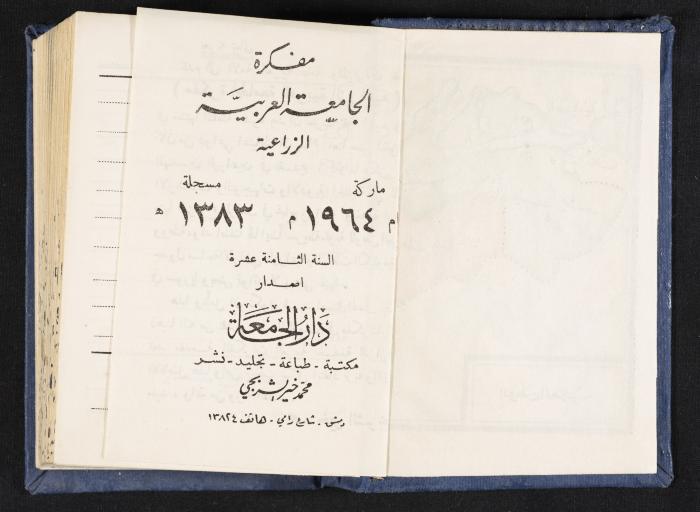 مفكرة
الجامعة العربية
الزراعية
ماركة مسجلة
م ١٩٦٤ م ١٣٨٣ ه
السنة الثامنة عشرة
اصدار
دار الجامعة
مكتبة - طباعة - تجليد - نشر
محمد خير الشربجي
دمشق . شارع رامي - هاتف ١٣٨٢٤